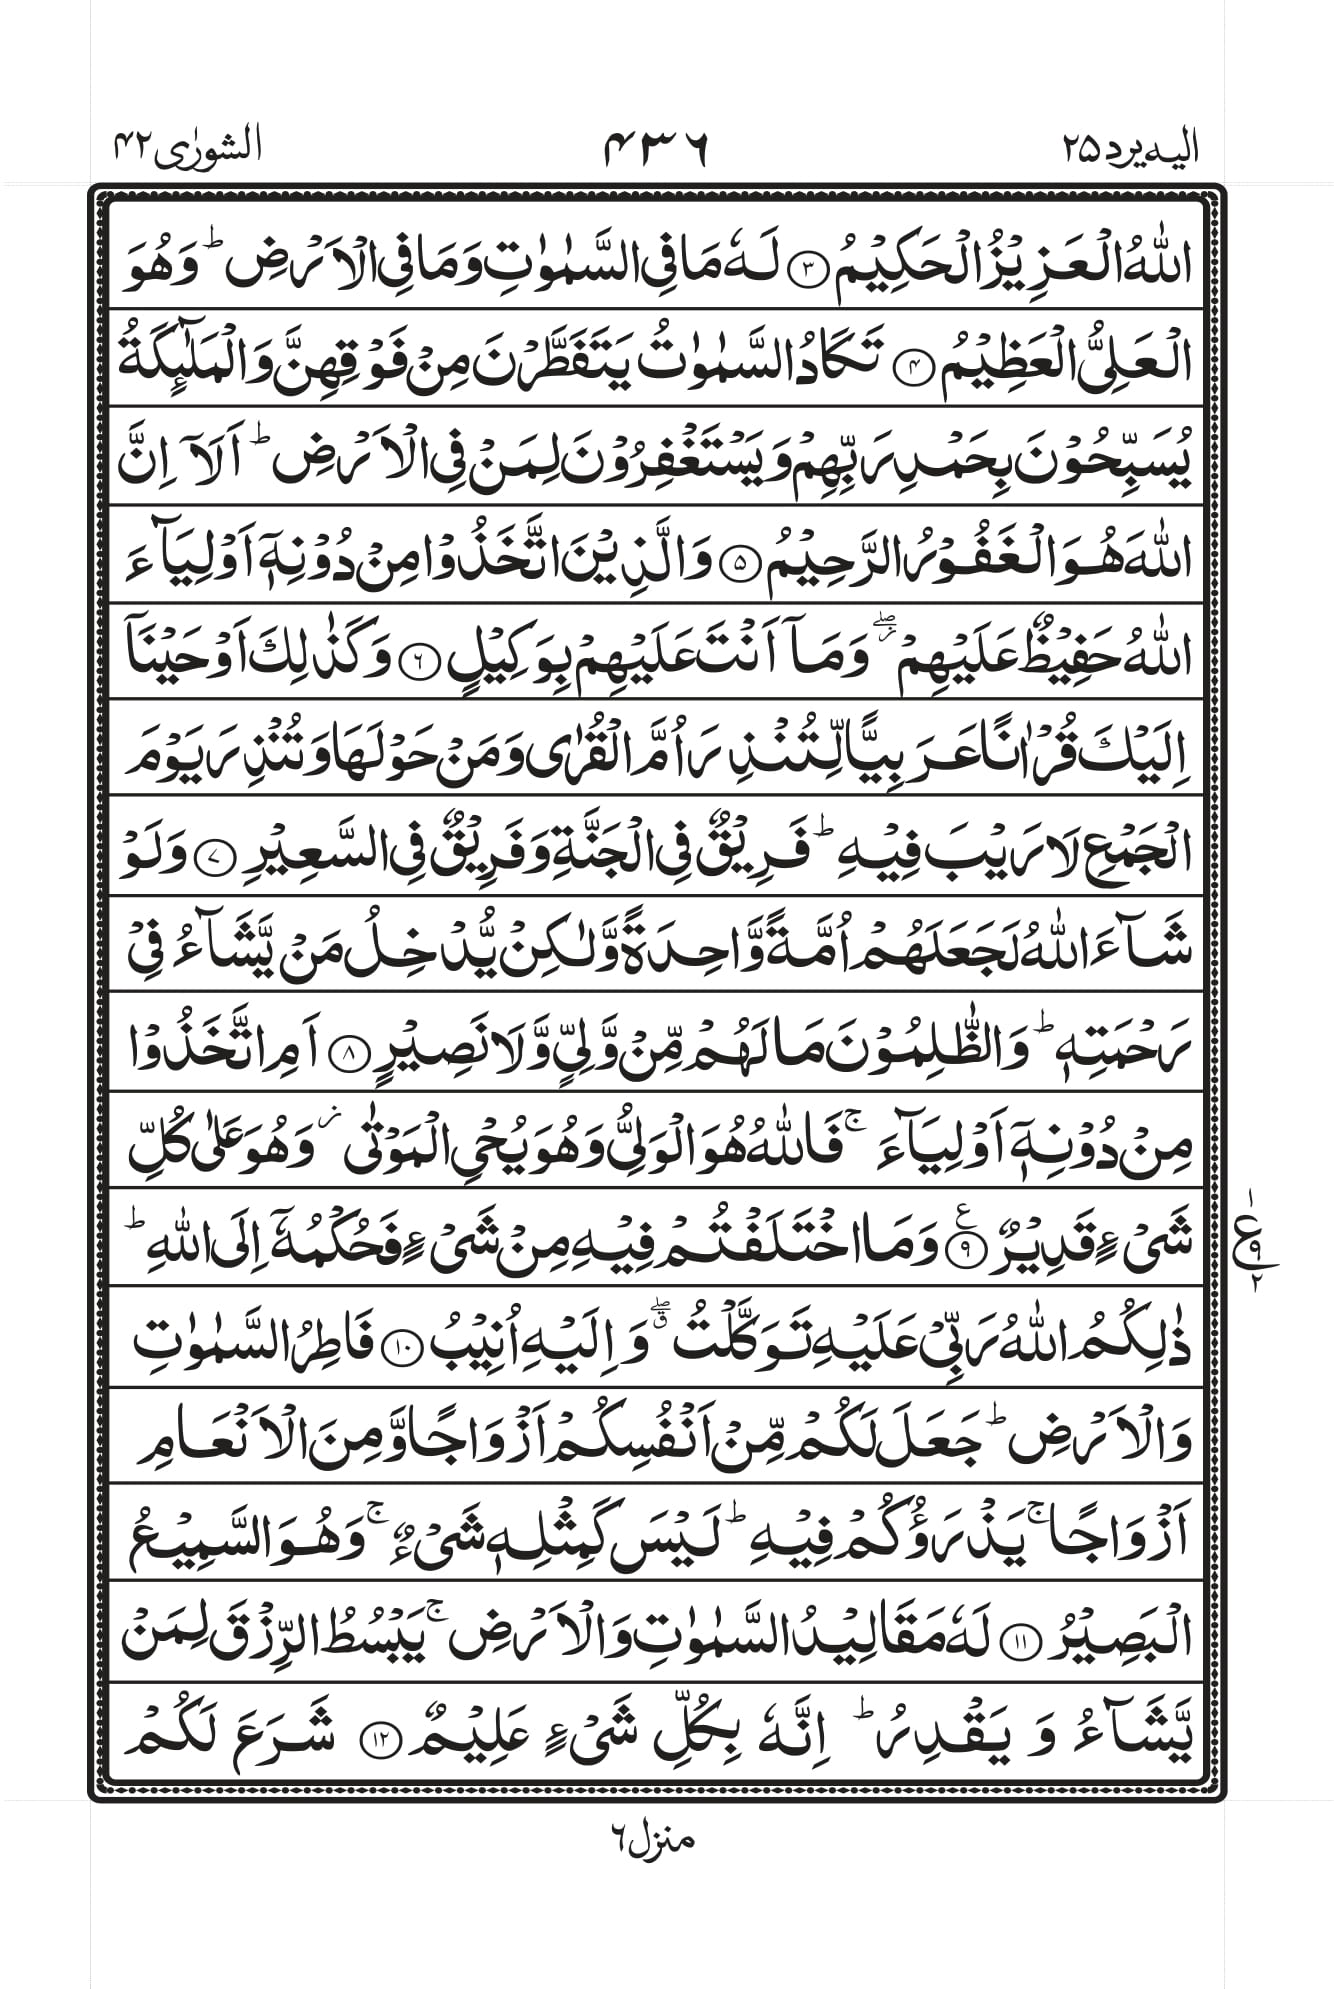 الیه یرد ۲۵
۴۳۶
الشورٰی ۴۲
اللّٰهُ الۡعَزِیۡزُ الۡحَكِیۡمُ ﴿۳﴾ لَهٗ مَا فِی السَّمٰوٰتِ وَمَا فِی الۡاَرۡضِ ؕ وَهُوَ
الۡعَلِیُّ الۡعَظِیۡمُ ﴿۴﴾ تَكَادُ السَّمٰوٰتُ یَتَفَطَّرۡنَ مِنۡ فَوۡقِهِنَّ وَالۡمَلٰٓئِكَةُ
یُسَبِّحُوۡنَ بِحَمۡدِ رَبِّهِمۡ وَیَسۡتَغۡفِرُوۡنَ لِمَنۡ فِی الۡاَرۡضِ ؕ اَلَاۤ اِنَّ
اللّٰهَ هُوَ الۡغَفُوۡرُ الرَّحِیۡمُ ﴿۵﴾ وَالَّذِیۡنَ اتَّخَذُوۡا مِنۡ دُوۡنِهٖۤ اَوۡلِیَآءَ
اللّٰهُ حَفِیۡظٌ عَلَیۡهِمۡ ۖ٘ وَمَاۤ اَنۡتَ عَلَیۡهِمۡ بِوَكِیۡلٍ ﴿۶﴾ وَكَذٰلِكَ اَوۡحَیۡنَاۤ
اِلَیۡكَ قُرۡاٰنًا عَرَبِیًّا لِّتُنۡذِرَ اُمَّ الۡقُرٰی وَمَنۡ حَوۡلَهَا وَتُنۡذِرَ یَوۡمَ
الۡجَمۡعِ لَا رَیۡبَ فِیۡهِ ؕ فَرِیۡقٌ فِی الۡجَنَّةِ وَفَرِیۡقٌ فِی السَّعِیۡرِ ﴿۷﴾ وَلَوۡ
شَآءَ اللّٰهُ لَجَعَلَهُمۡ اُمَّةً وَّاحِدَةً وَّلٰكِنۡ یُّدۡخِلُ مَنۡ یَّشَآءُ فِیۡ
رَحۡمَتِهٖ ؕ وَالظّٰلِمُوۡنَ مَا لَهُمۡ مِّنۡ وَّلِیٍّ وَّلَا نَصِیۡرٍ ﴿۸﴾ اَمِ اتَّخَذُوۡا
مِنۡ دُوۡنِهٖۤ اَوۡلِیَآءَ ۚ فَاللّٰهُ هُوَ الۡوَلِیُّ وَهُوَ یُحۡیِ الۡمَوۡتٰی ؗ وَهُوَ عَلٰی كُلِّ
شَیۡءٍ قَدِیۡرٌ ﴿۹﴾ع وَمَا اخۡتَلَفۡتُمۡ فِیۡهِ مِنۡ شَیۡءٍ فَحُكۡمُهٗۤ اِلَی اللّٰهِ ؕ
۱ ع ۹ ۲
ذٰلِكُمُ اللّٰهُ رَبِّیۡ عَلَیۡهِ تَوَكَّلۡتُ ۖۗ وَاِلَیۡهِ اُنِیۡبُ ﴿۱۰﴾ فَاطِرُ السَّمٰوٰتِ
وَالۡاَرۡضِ ؕ جَعَلَ لَكُمۡ مِّنۡ اَنۡفُسِكُمۡ اَزۡوَاجًا وَّمِنَ الۡاَنۡعَامِ
اَزۡوَاجًا ۚ یَذۡرَؤُكُمۡ فِیۡهِ ؕ لَیۡسَ كَمِثۡلِهٖ شَیۡءٌ ۚ وَهُوَ السَّمِیۡعُ
الۡبَصِیۡرُ ﴿۱۱﴾ لَهٗ مَقَالِیۡدُ السَّمٰوٰتِ وَالۡاَرۡضِ ۚ یَبۡسُطُ الرِّزۡقَ لِمَنۡ
یَّشَآءُ وَیَقۡدِرُ ؕ اِنَّهٗ بِكُلِّ شَیۡءٍ عَلِیۡمٌ ﴿۱۲﴾ شَرَعَ لَكُمۡ
منزل ۶